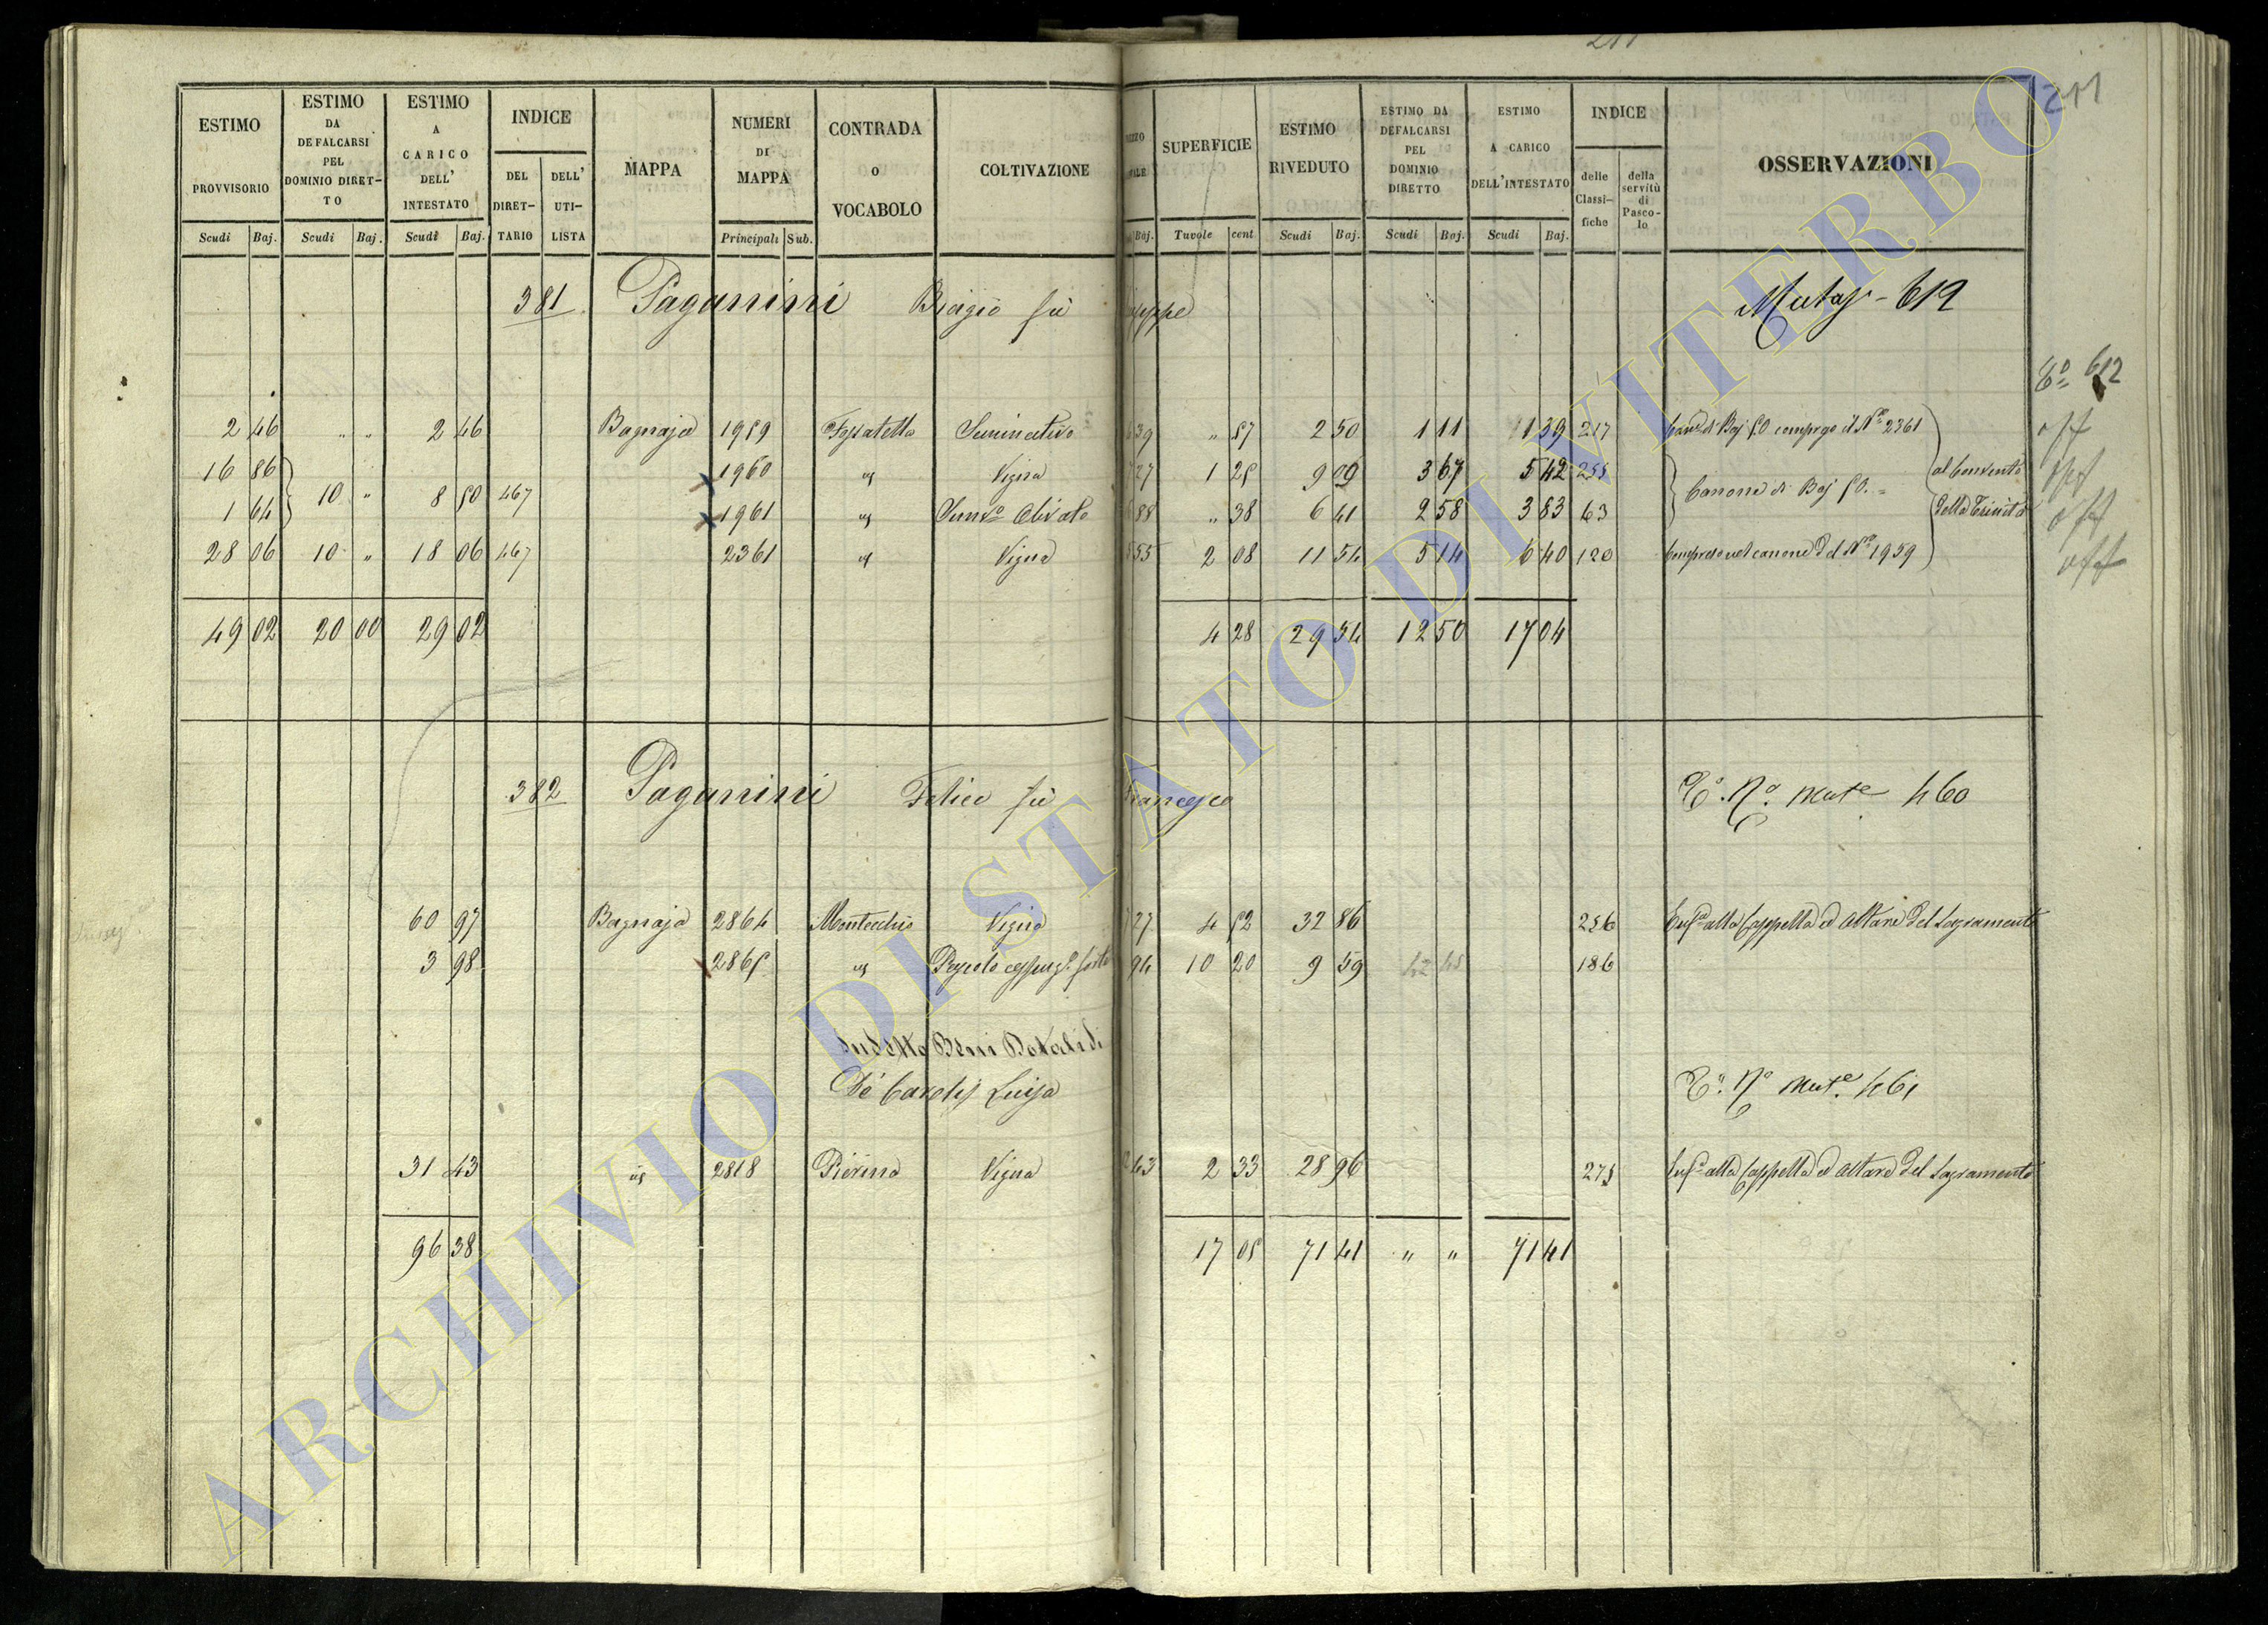 211
ESTIMO PROVVISORIO | ESTIMO DA DEFALCARSI PEL DOMINIO DIRETTO | ESTIMO A CARICO DELL' INTESTATO | INDICE DEL DIRETTARIO | DELL' UTILISTA | MAPPA | NUMERI DI MAPPA | CONTRADA O VOCABOLO | COLTIVAZIONE | SUPERFICIE | ESTIMO RIVEDUTO | ESTIMO DA DEFALCARSI PEL DOMINIO DIRETTO | ESTIMO A CARICO DELL'INTESTATO | INDICE delle Classifiche | della servitù di Pascolo | OSSERVAZIONI
Scudi | Baj. | Scudi | Baj. | Scudi | Baj. | Principali | Sub. | Baj. | Tavole | cent | Scudi | Baj. | Scudi | Baj. | Scudi | Baj.
381 Paganini Biagio fù 612
612
2 46 " " 2 46 Bagnaja 1959 Seminativo 39 " 57 2 50 1 11 1 39 217 Baj 50 il N.º 2361
16 86 1960 Vigna 27 1 25 9 09 3 67 5 42 255 al Convento
10 " 8 50 467 Canone di Baj 50.
1 64 1961 88 " 38 6 41 2 58 3 83 63 della Trinità
28 06 10 " 18 06 467 2361 Vigna 55 2 08 11 54 5 14 6 40 120 Compreso nel canone del N.º 1959
49 02 20 00 29 02 4 28 29 54 12 50 17 04
382 Paganini Felice fù Francesco 460
60 97 Bagnaja 2864 Montecchio Vigna 27 4 52 32 86 256 alla Cappella ed Altare del Sagramento
3 98 2865 94 10 20 9 59 186
Sudetto Beni Dotali di
De Carolis Luisa 461
31 43 2818 Pierina Vigna 43 2 33 28 96 275 alla Cappella ed altare del Sagramento
96 38 17 05 71 41 " " 71 41
ARCHIVIO DI STATO DI VITERBO